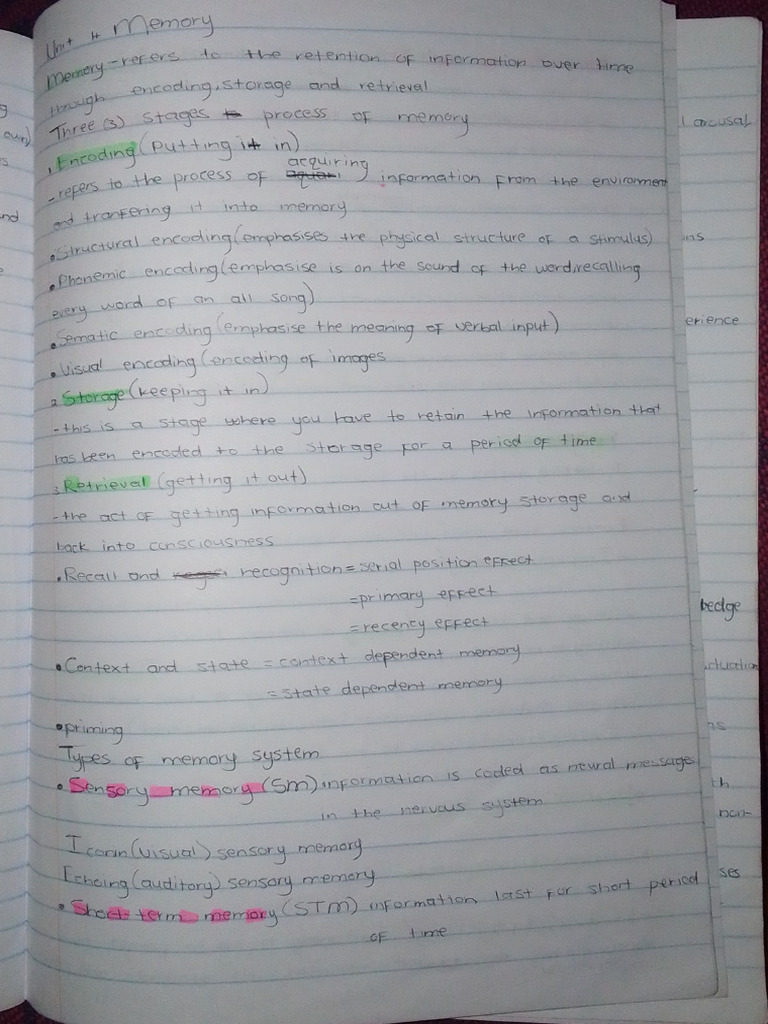 Unit 4 Memory
Memory - refers to the retention of information over time
through encoding, storage and retrieval
Three (3) stages process of memory
1. Encoding (putting it in)
- refers to the process of acquiring information from the environment
and tranfering it into memory
• Structural encoding (emphasises the physical structure of a stimulus)
• Phonemic encoding (emphasise is on the sound of the word/recalling
every word of an all song)
• Sematic encoding (emphasise the meaning of verbal input)
• Visual encoding (encoding of images
2 Storage (keeping it in)
- this is a stage where you have to retain the information that
has been encoded to the storage for a period of time
3 Retrieval (getting it out)
- the act of getting information out of memory storage and
back into consciousness
• Recall and recognition = serial position effect
= primary effect
= recency effect
• Context and state = context dependent memory
= state dependent memory
• priming
Types of memory system
• Sensory memory (Sm) information is coded as neural message
in the nervous system
Iconin (visual) sensory memory
Echoing (auditory) sensory memory
• Short term memory (STM) information last for short period
of time
l arousal
ns
erience
bedge
uctuation
ns
th
non-
ses
own)
s
nd